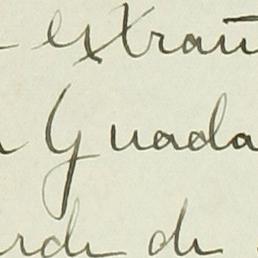 extrañ
y Guada
rde de